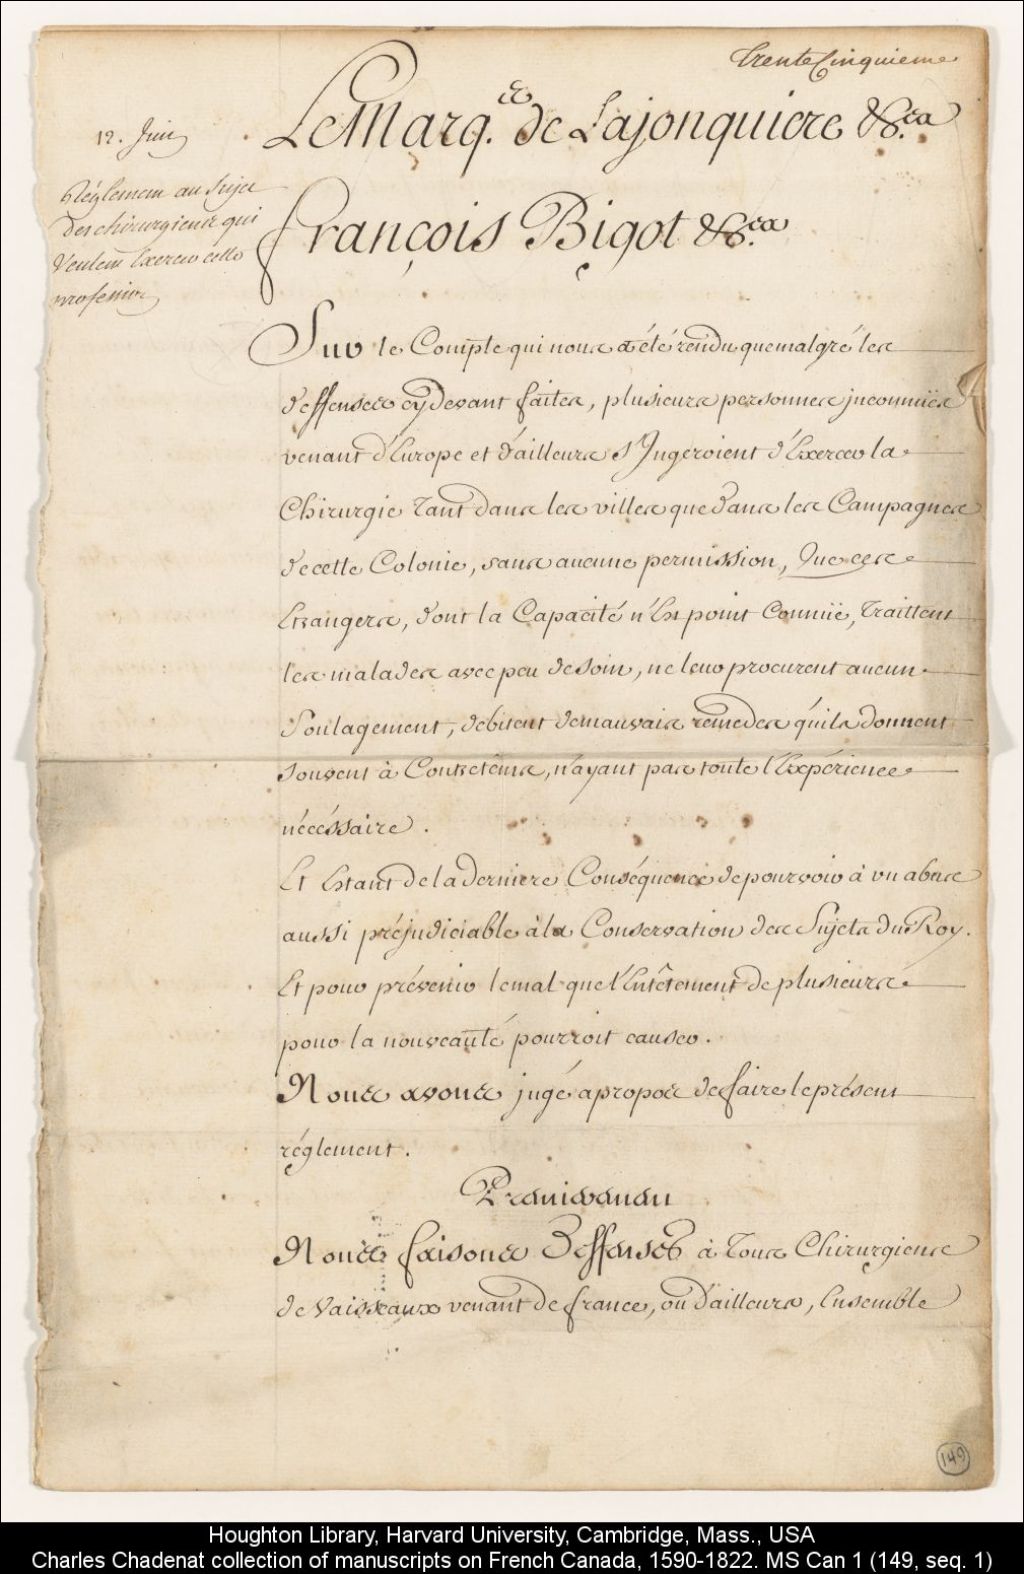 Trente Cinquieme
12. Juin
Réglement au Sujet
Des chirurgiens qui
Veulent Exercer cette
profession
Le Marq.is de Lajonquiere &c.ra
François Bigot &c.ra
Sur le Compte qui nous a été rendu que malgré les
deffenses cydevant faites, plusieurs personnes jnconnües
venant d'Europe et d'ailleurs s'Jngeroient d'Exercer la
Chirurgie Tant dans les villes que dans les Campagnes
de cette Colonie, sans aucune permission, Que ces
Etrangers, dont la Capacité n'Est point Connüe, Traittent
les malades avec peu de soin, ne leur procurent aucun
Soulagement, debitent de mauvais remedes qu'ils donnent
souvent à Contretems, n'ayant pas toute l'Expérience
nécéssaire.
Et Etant de la derniere Conséquence de pourvoir à un abus
aussi préjudiciable à la Conservation des Sujets du Roy.
Et pour prévenir le mal que l'Entêtement de plusieurs
pour la nouveauté pourroit causer.
Nous avons jugé apropos de faire le présent
réglement.
Nous faisons Deffenses à Tous Chirurgiens
de Vaisseaux venant de france, ou d'ailleurs, Ensemble
149
Houghton Library, Harvard University, Cambridge, Mass., USA
Charles Chadenat collection of manuscripts on French Canada, 1590-1822. MS Can 1 (149, seq. 1)